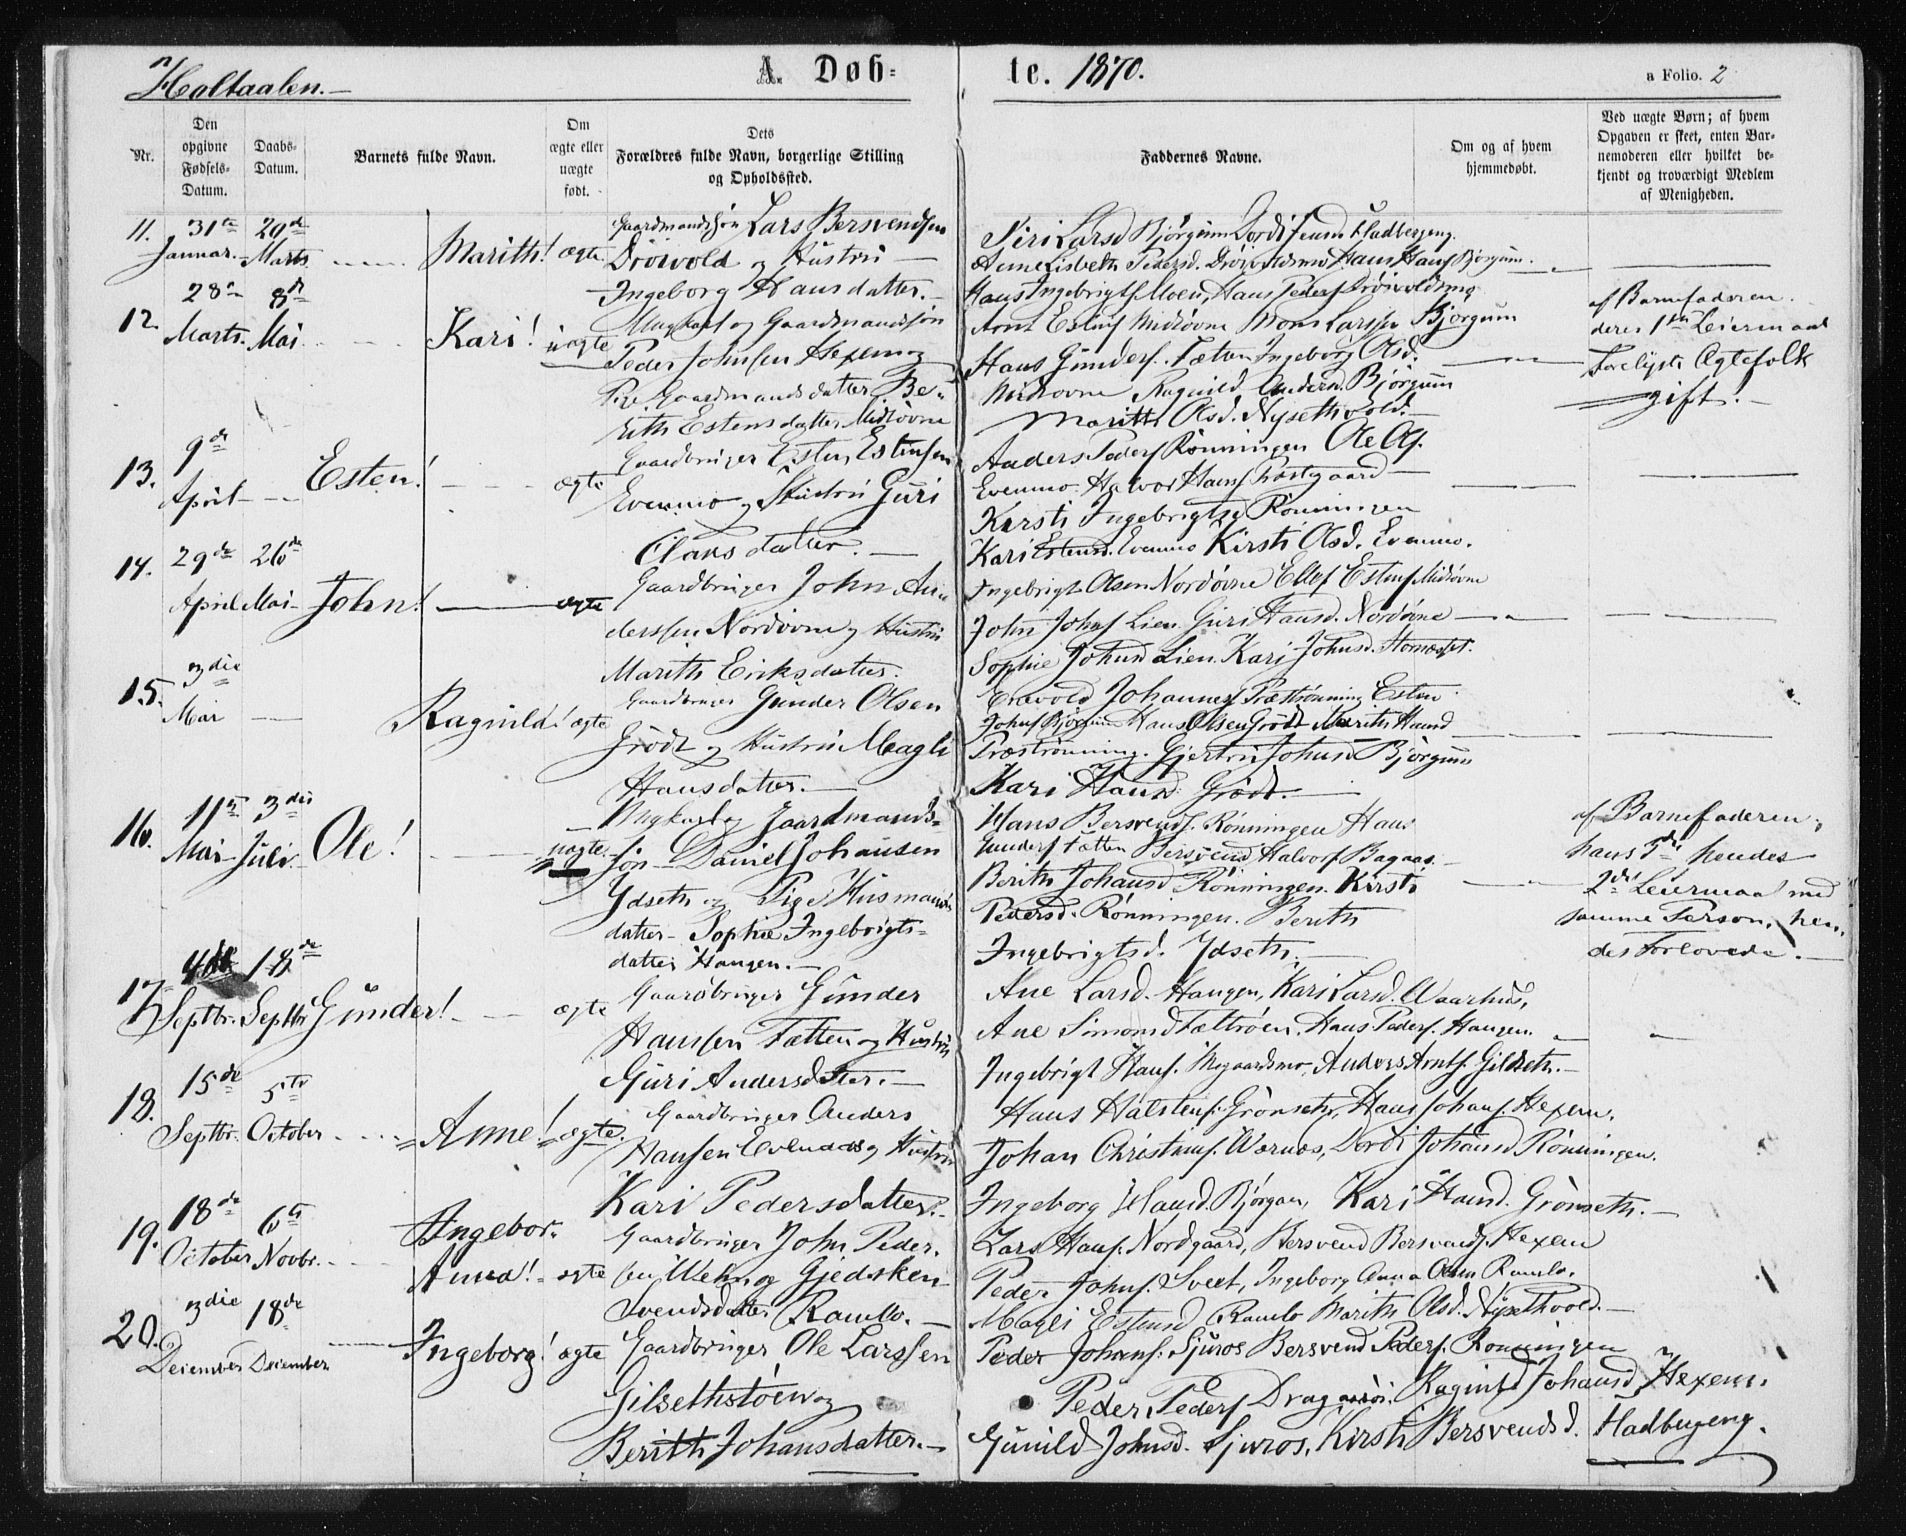 Holtaalen.
A. Døb-
te. 1870.
a Folio. 2
Nr.
Den opgivne Fødsels-Datum.
Daabs-Datum.
Barnets fulde Navn.
Om ægte eller uægte født.
Dets Forældres fulde Navn, borgerlige Stilling og Opholdssted.
Faddernes Navne.
Om og af hvem hjemmedøbt.
Ved uægte Børn; af hvem Opgaven er skeet, enten Barnemoderen eller hvilket bekjendt og troværdigt Medlem af Menigheden.
11. 31te Januar. 29de Marts Marith! ægte
Gaardmandssøn Lars Bersvendsen
Dröivold og Hustru
Ingeborg Hansdatter.
Siri Larsd Bjørgum
Anne Lisbeth Pedersd. Hans Hans Bjørgum.
Hans Ingebrigts Moen, Hans Peders
12. 28de Marts. 8de Mai Kari! uægte
Ungkarl og Gaardmandssøn
Peder Johnsen Hexem og
Pige Gaardmandsdatter Be-
rith Estensdatter Midtövne
Arnt Estens Midtövne Mons Larssen Bjørgum
Hans Gunders. Tætten Ingeborg Olsd.
Midtovne Ragnild Andersd. Bjørgum
Marith Olsd. Nysethvold.
af Barnefaderen.
deres 1ste Leiermaal
Forelyste Ægtefolk
gift.
13. 9de April Esten! ægte
Gaardbruger Esten Estensen
Evenmo og Hustru Guri
Clausdatter.
Anders Peders Rönningen Ole Ols.
Evenmo. Halvor Hans
Kirsti Ingebrigtsd Rönningen
Kari Estensd. Evenmo Kirsti Olsd. Evenmo.
14. 29de April 26de Mai John! ægte
Gaardbruger John An-
derssen Nordövne og Hustru
Marith Eriksdatter.
Ingebrigt Olsen Nordövne Ellef Estens Midtövne
John Johns Lien Guri Hansd. Nordövne
Sophie Johnsd Lien. Kari Johnsd.
15. 3die Mai Ragnild! ægte
Gaardbruger Gunder Olsen
Grödt og Hustru Magli
Hansdatter.
Johannes Esten
Johns Bjørgum Hans Olsen Grödt Marith Hansd
Præströnning. Gjertru Johnsd Bjørgum
Kari Hansd. Grödt.
16. 11te Mai 3die Juli Ole! uægte
Ungkarl og Gaardmands-
søn Daniel Johansen
Ydseth og Pige Husmands
datter Sophie Ingebrigts-
datter Haugen.
Hans Bersvends. Rönningen Hans
Gunders Tætten Bersvend Halvors Bagaas.
Berith Johansd Rönningen. Kirsti
Pedersd. Rönningen. Berith
Ingebrigtsd. Ydseth.
af Barnefaderen,
hans 3die hendes
2det Leiermaal med
samme Person, hen-
des Forlovede.
17. Septbr. 18de Septbr Gunder! ægte
Gaardbruger Gunder
Hanssen Tætten og Hustru
Guri Andersdatter.
Ane Larsd. Haugen, Kari Larsd. Waarhus,
Ane Simonsd Hans Peders. Haugen
Ingebrigt Hans. Mogaardsmo, Anders Arnts. Gilseth.
18. 15de Septbr. 5te October Anne! ægte.
Gaardbruger Anders
Hansen og Hustru
Kari Pedersdatter.
Hans Halstens. Grönseth, Hans Johans. Hexem.
Johan Christians. Wærnes, Dordi Johansd Rönningen.
Ingeborg Hansd. Bjørgum, Kari Hansd. Grönseth.
19. 18de October 6te Novbr. Ingebor.
Anna! ægte
Gaardbruger John Peder-
sen og Gjedsken
Svendsdatter Ramlo.
Lars Hans. Nordgaard, Bersvend Bersvends. Hexem
Peder Johns. Svelt, Ingeborg Anna Olsen Ramlo.
Magli Estensd Ramlo Marith Olsd. Nysethvold.
20. 3die December 18de December Ingeborg! ægte
Gaardbruger Ole Larssen
Gilsethstöen og
Berith Johansdatter.
Peder Johans. Sjuros Bersvend Peders. Rönningen
Peder Peders Ragnild Johansd Hexem.
Gunild Johnsd. Sjuros, Kirsti Bersvendsd.